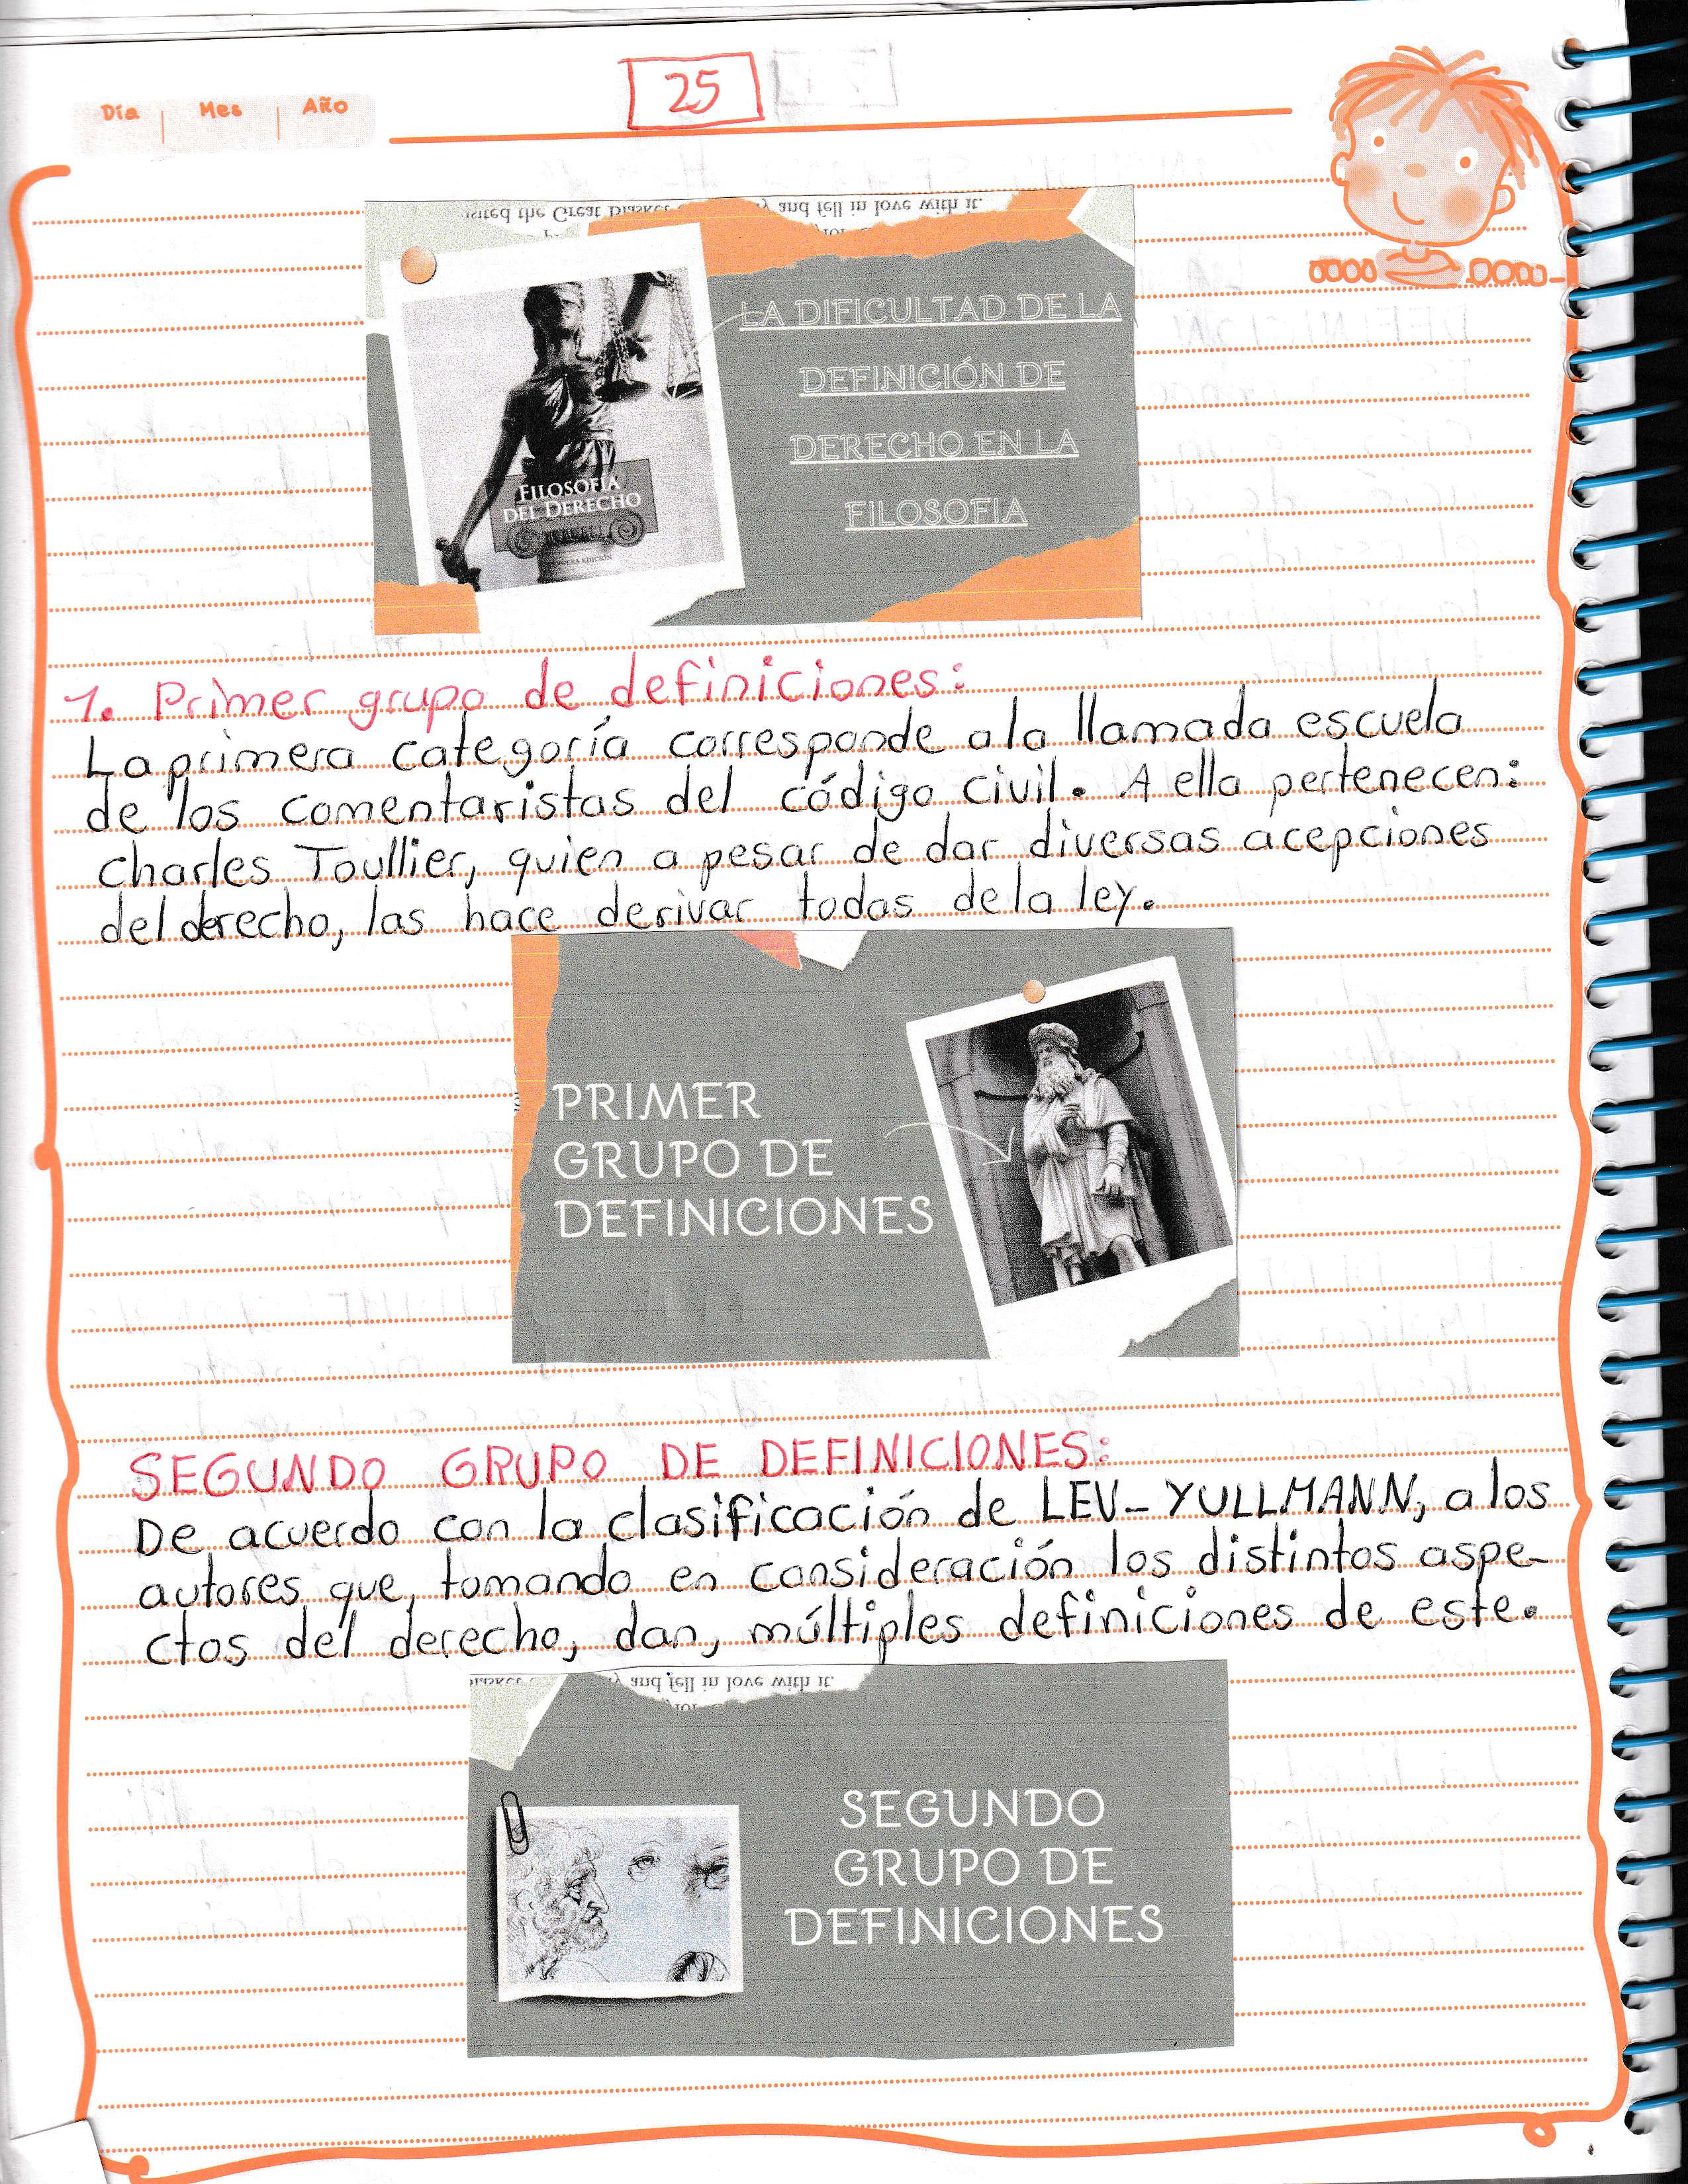 25
Día Mes Año
isited the Great Blasket
and fell in love with it.
LA DIFICULTAD DE LA
DEFINICIÓN DE
DERECHO EN LA
FILOSOFIA
FILOSOFÍA
DEL DERECHO
1. Primer grupo de definiciones:
La primera categoría corresponde a la llamada escuela
de los comentaristas del código civil. A ella pertenecen:
Charles Toullier, quien a pesar de dar diversas acepciones
del derecho, las hace derivar todas de la ley.
PRIMER
GRUPO DE
DEFINICIONES
SEGUNDO GRUPO DE DEFINICIONES:
De acuerdo con la clasificación de LEV-YULLMANN, a los
autores que, tomando en consideración los distintos aspe-
ctos del derecho, dan, múltiples definiciones de este.
and fell in love with it.
SEGUNDO
GRUPO DE
DEFINICIONES